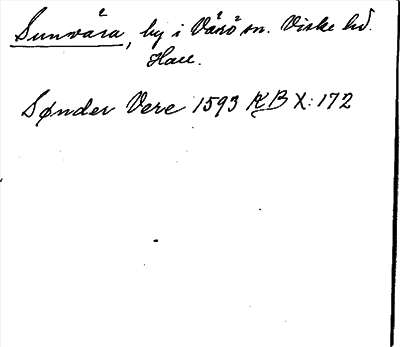 Sunvära, by i Värö sn. Viske hd.
Hall.
Sønder Vere 1593 KB X: 172